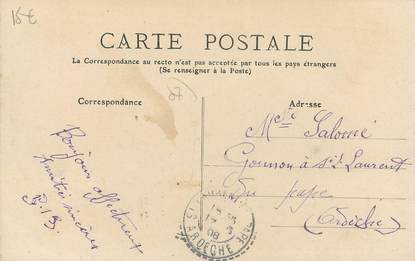 15€
CARTE POSTALE
La Correspondance au recto n'est pas acceptée par tous les pays étrangers
(Se renseigner à la Poste)
07
Correspondance
Adresse
Bonjour affectueux
Amitiés sincères
Melle Salomé
Gounon à St Laurent
du pape
(Ardèche)
PAPE
08
ARDÈCHE